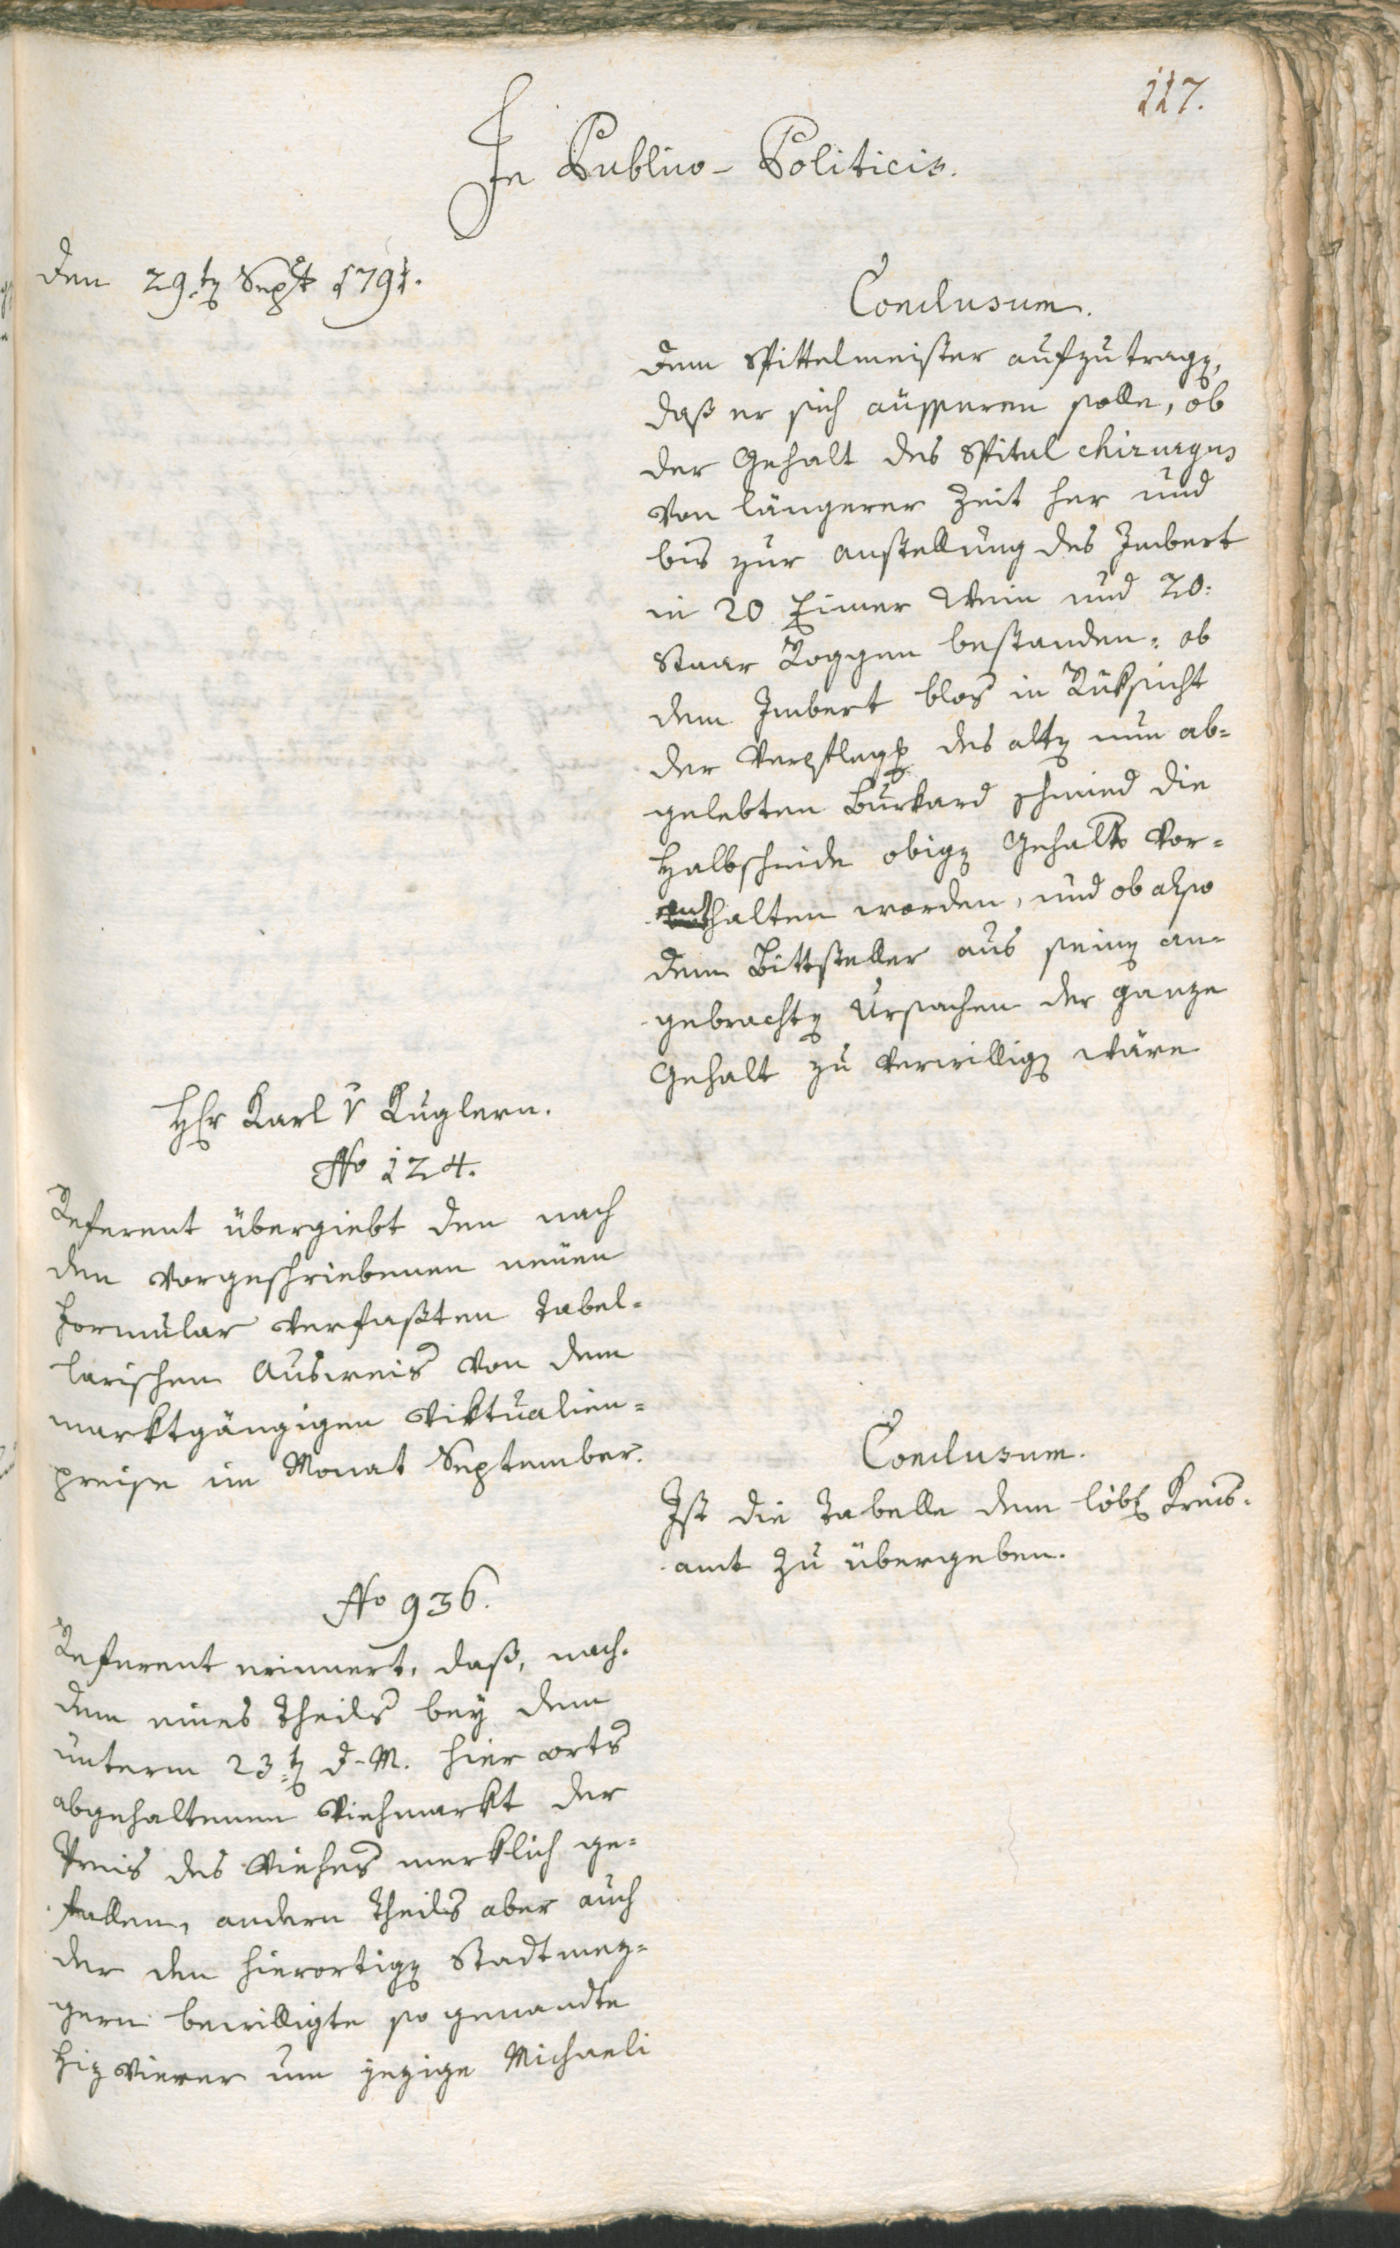 117.
In Publico-Politicis.
Den 29.ten Sept 1791.
Conclusum.
Dem Spittelmeister aufzutragen,
daß er sich äusseren solle, ob
der Gehalt des Spital chirurgus
von längerer Zeit her und
bis zur anstellung des Imbert
in 20 Eimer Wein und 20:
Staar Roggen bestanden: ob
dem Imbert blos in Rüksicht
der Verpflegg des alten nun ab=
gelebten Burkard schmied die
Halbscheide obigen Gehalts vor=
enthalten worden, und ob also
dem Bittsteller aus seinen an=
gebrachten Ursachen der ganze
Gehalt zu verwilligen wäre
Hr Karl v Kuglern.
No 124.
Referent übergiebt den nach
den vorgeschriebenen neuen
Formular verfaßten tabel=
larischen Ausweis von dem
marktgängigen Viktualien=
preise im Monat September.
Conclusum.
Ist die Tabelle dem löbl Kreis=
amt zu übergeben.
No 936.
Referent erinnert, daß, nach=
dem eines Theils bey dem
unterm 23.ten d. M. hier orts
abgehaltenen Viehmarkt der
Preis des Viehes merklich ge=
fallen, andern Theils aber auch
der den hierortigen Stadtmez=
gern bewilligte so genandte
Hiz vierer um jezige Michaeli